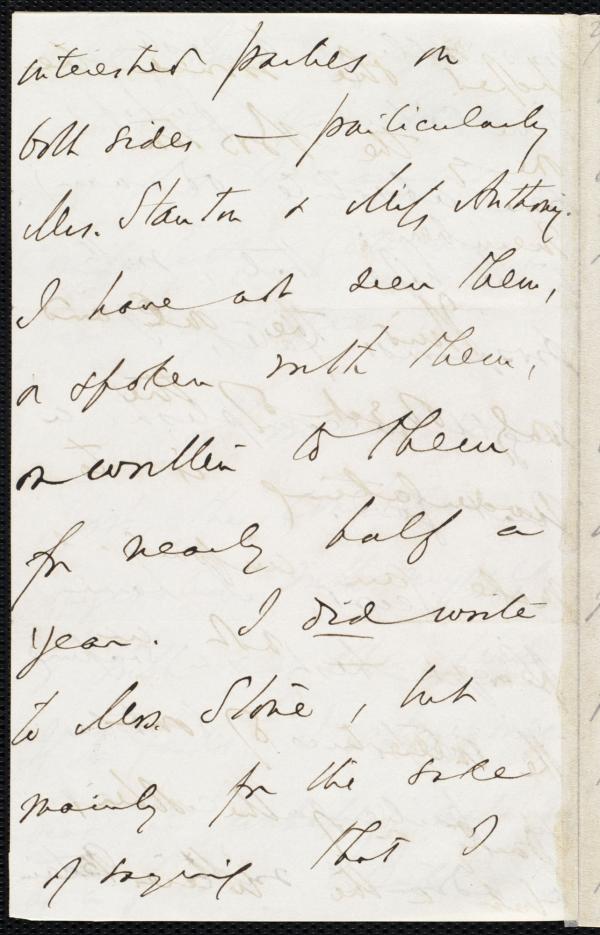 interested parties on
both sides — particularly
Mrs. Stanton & Miss Anthony.
I have not seen them,
or spoken with them,
or written to them
for nearly half a
year. I did write
to Mrs. Stone, but
mainly for the sake
of saying that I